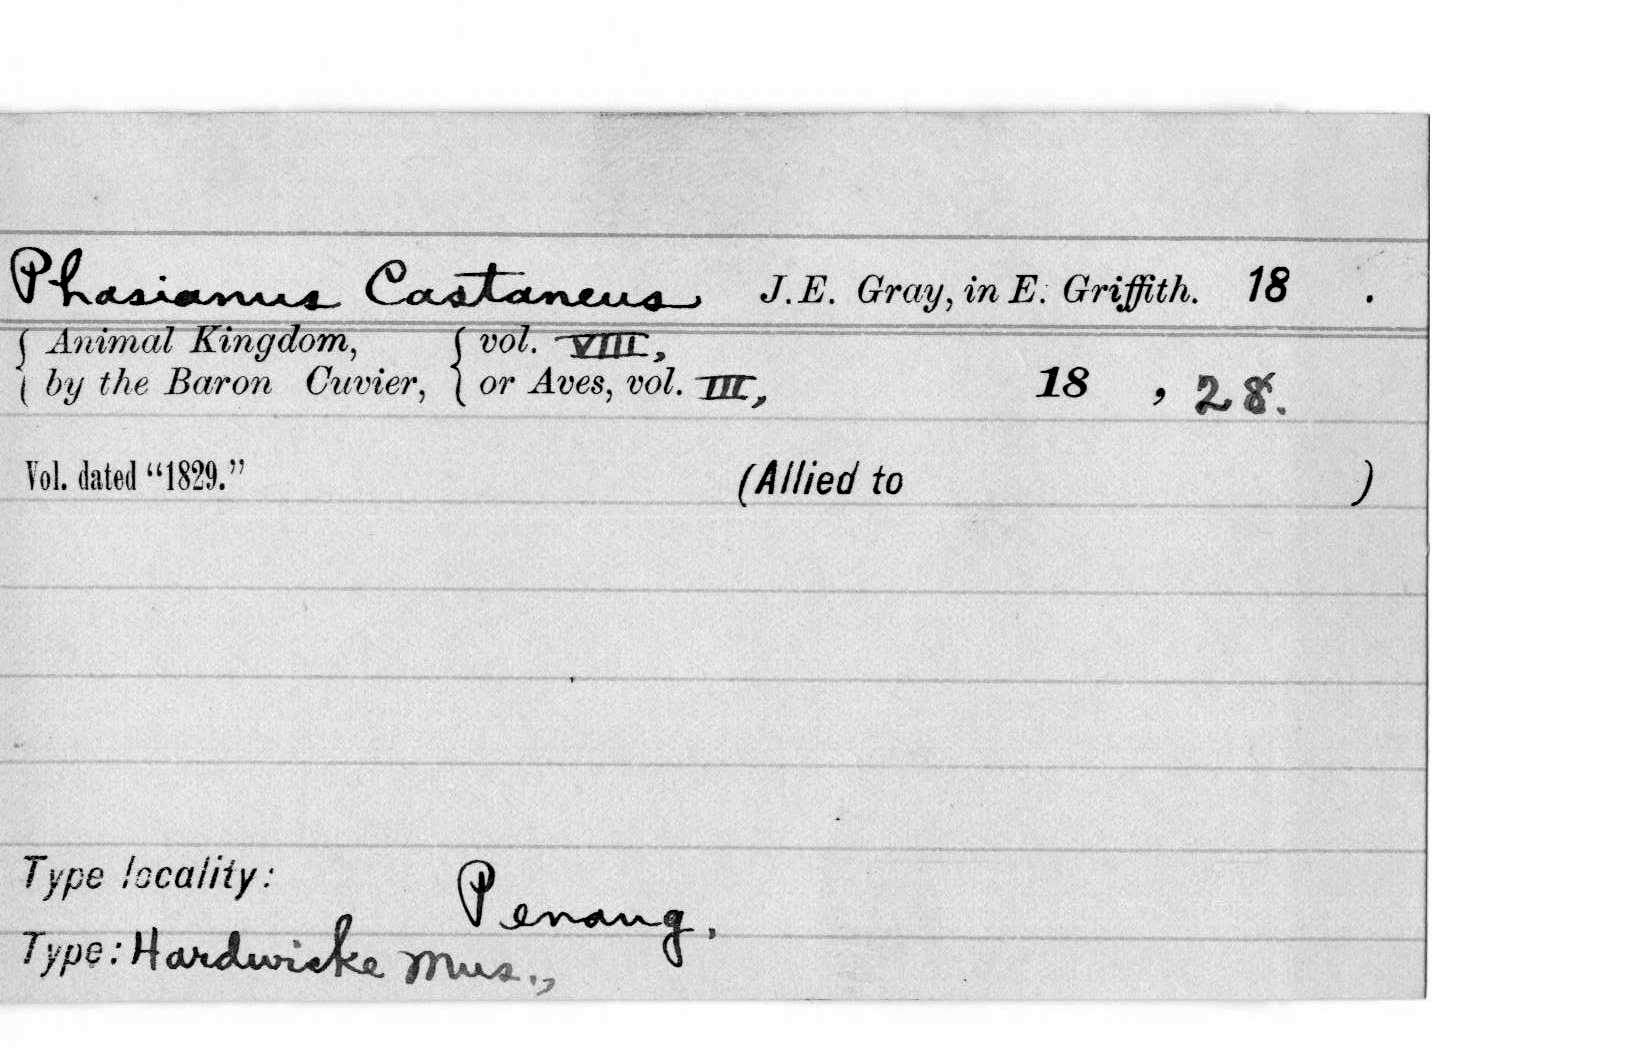 Phasianus Castaneus J.E. Gray, in E. Griffith. 18 .
{ Animal Kingdom, { vol. VIII,
{ by the Baron Cuvier, { or Aves, vol. III, 18 , 28.
Vol. dated “1829.” (Allied to )
Type locality: Penang.
Type: Hardwicke Mus.,